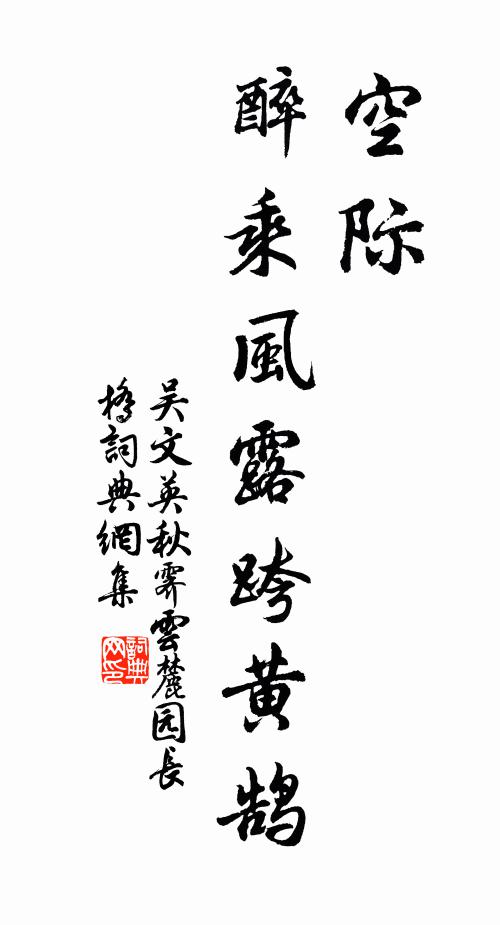 空际
醉乘風露跨黄鹄
吴文英秋霽雲麓园長
橋詞典網集
詞典
网印